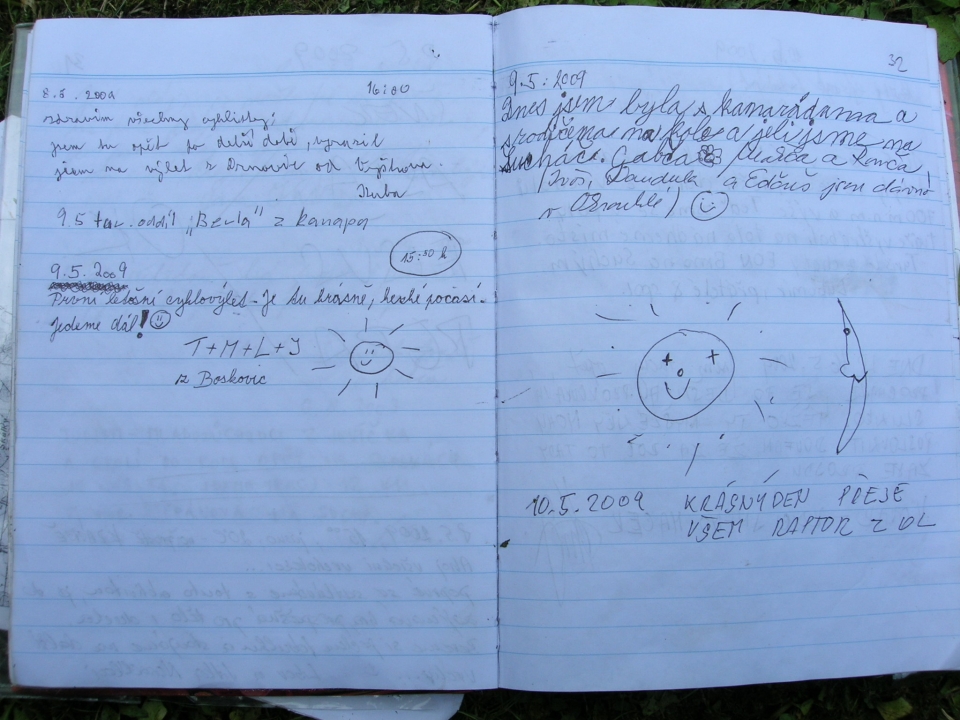 8.5. 2009 16:00
zdravím všechny cyklisty!
jsem tu opět po delší době, vyrazil
jsem na výlet z Drnovic od Vyškova.
Kuba
9.5 tur. oddíl „Berla" z kanapa
15:30 h
9.5.2009
První letošní cyklovýlet - Je tu krásně, hezké počasí.
Jedeme dál! 
T+M+L+J
z Boskovic
32
9.5.2009
Dnes jsem byla s kamarádama a
s rodičema na kole a jeli jsme na
. Gabča a Renča!
(, a jsou dávno
v )
10.5.2009 KRÁSNÝ DEN PŘEJE
VŠEM RAPTOR Z OL